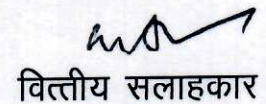 वित्तीय सलाहकार